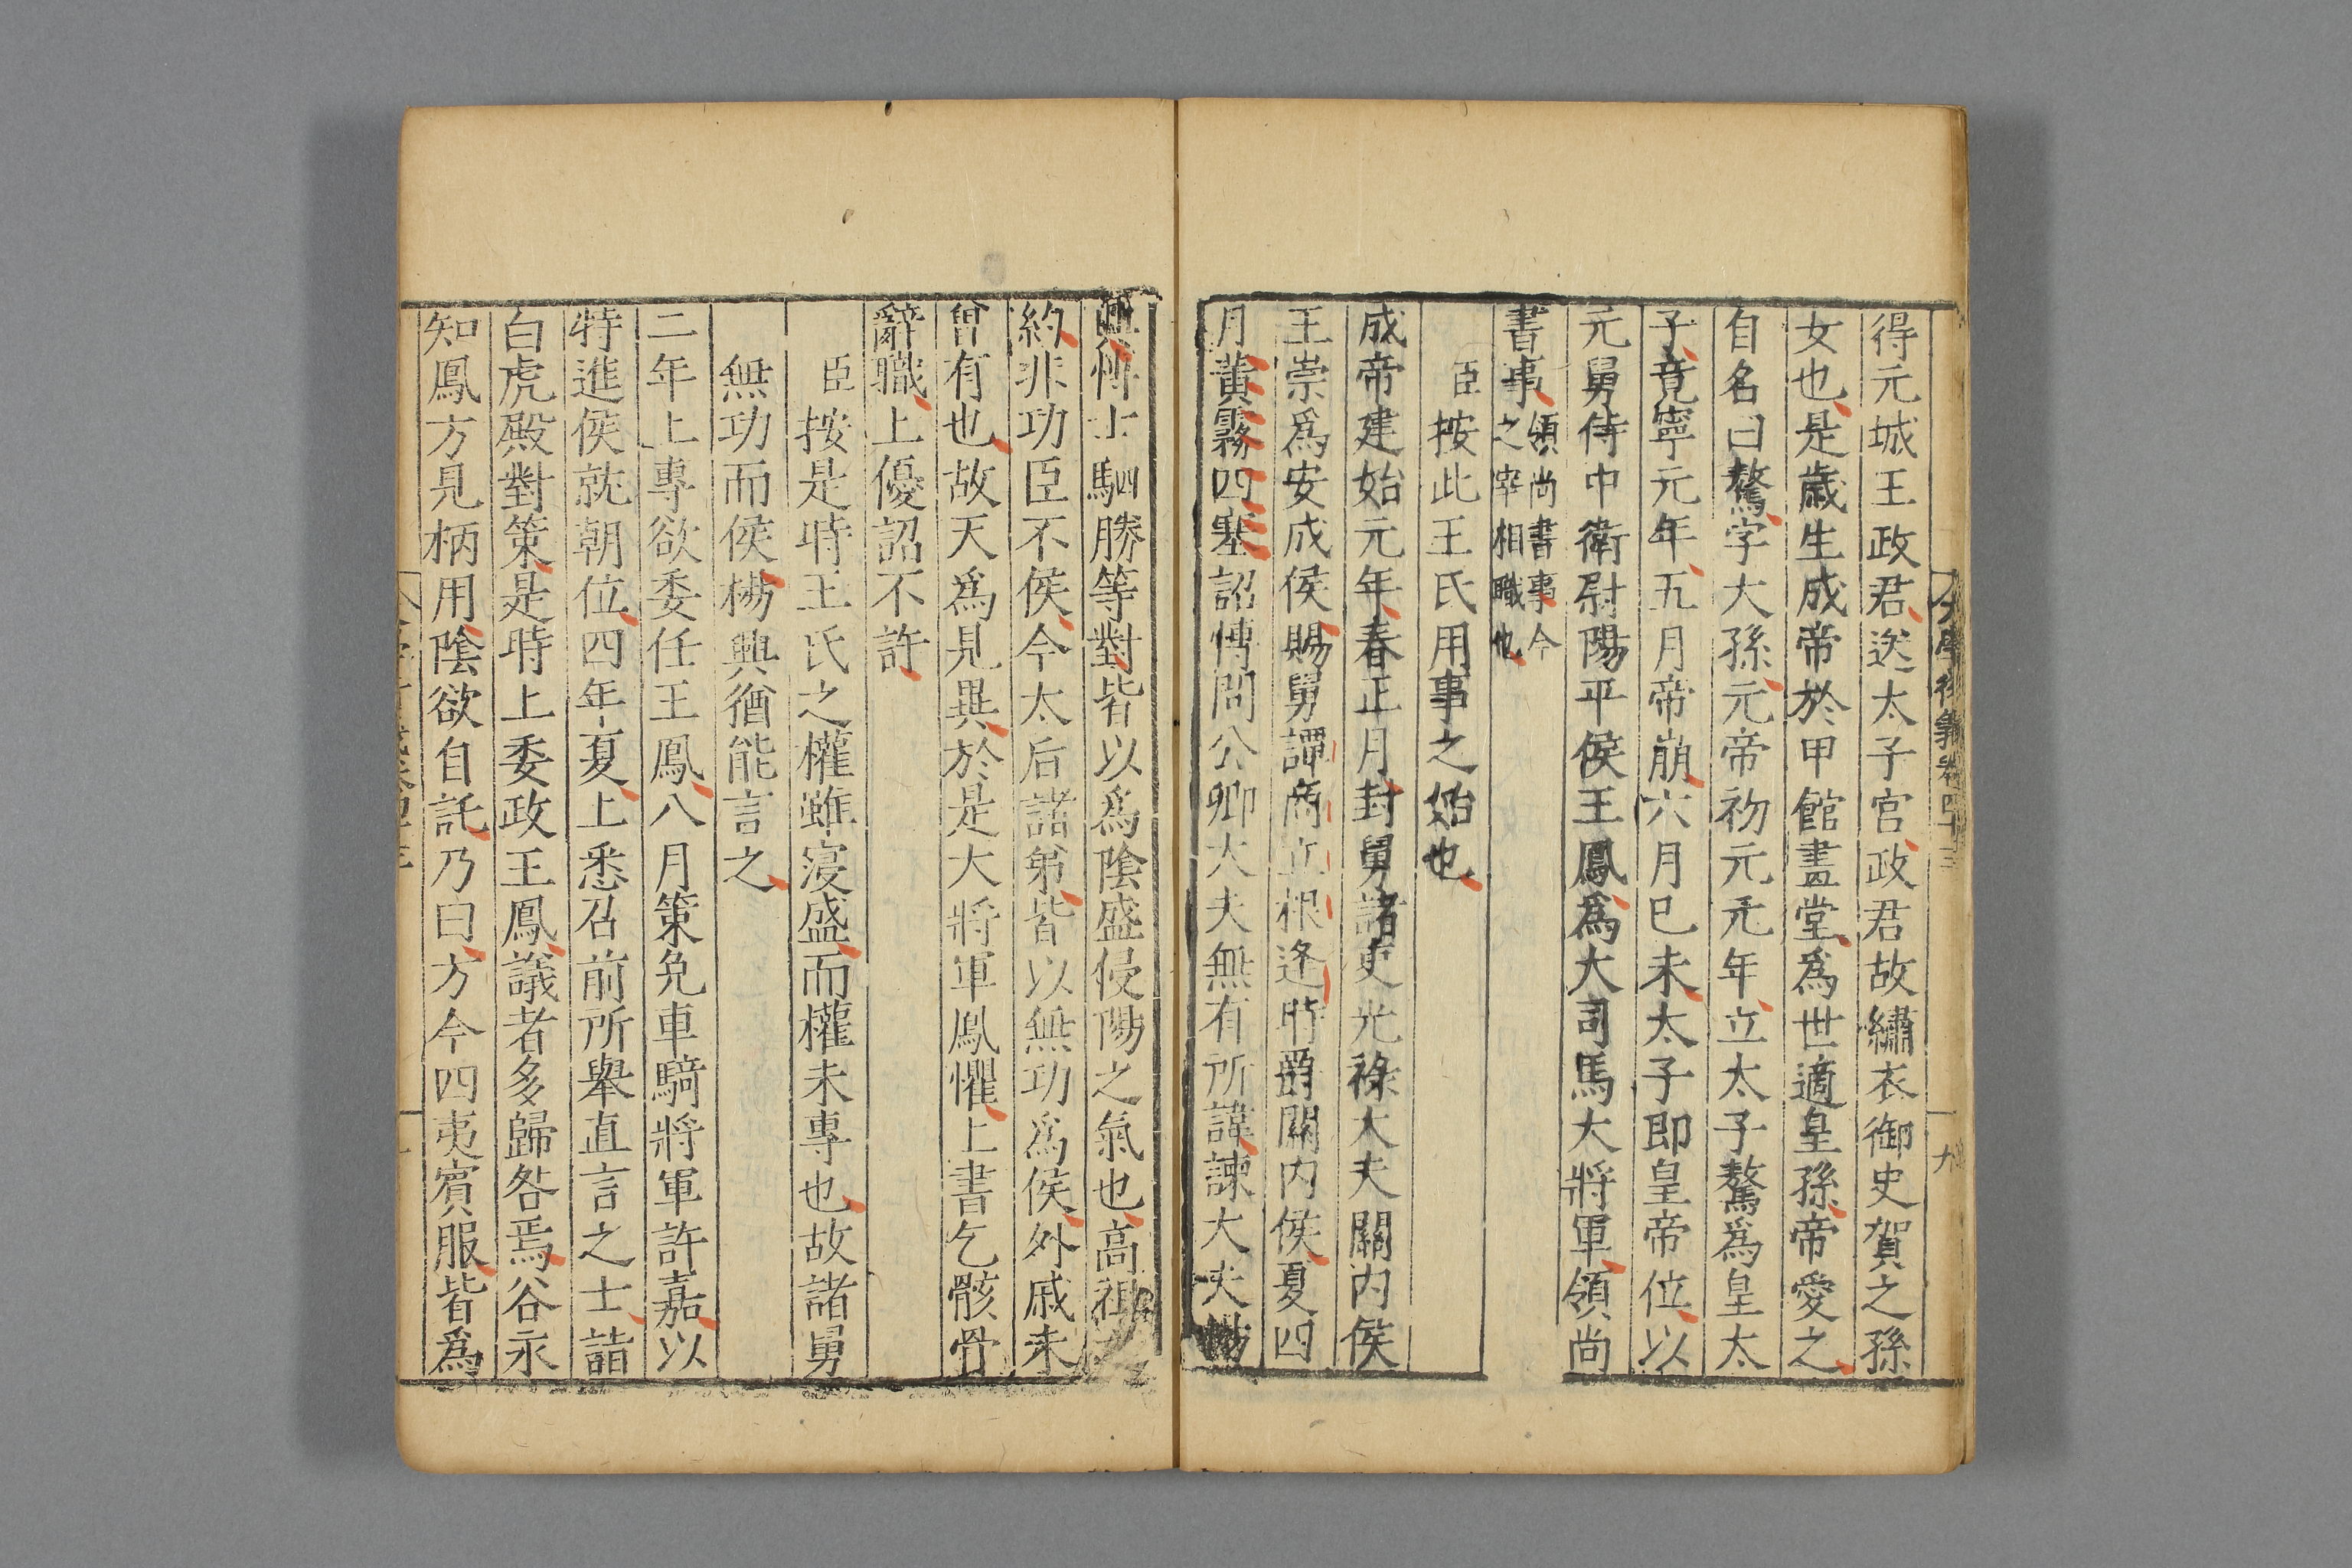 大學衍義卷四十三
九
得元城王政君送太子宮政君故繡衣御史賀之孫
女也是歲生成帝於甲館畫堂為世適皇孫帝愛之
自名曰驁字大孫元帝初元元年立太子驁為皇太
子竟寧元年五月帝崩六月巳未太子即皇帝位以
元舅侍中衛尉陽平侯王鳳為大司馬大將軍領尚
書事領尚書事今之宰相職也
臣按此王氏用事之始也
成帝建始元年春正月封舅諸吏光祿大夫關內侯
王崇為安成侯賜舅譚商立根逢時爵關內侯夏四
月黃霧四塞詔博問公卿大夫無有所諱諫大夫楊
興博士駟勝等對皆以為陰盛侵陽之氣也高祖之
約非功臣不侯今太后諸弟皆以無功為侯外戚未
曾有也故天為見異於是大將軍鳳懼上書乞骸骨
辭職上優詔不許
臣按是時王氏之權雖寖盛而權未專也故諸舅
無功而侯楊興猶能言之
二年上專欲委任王鳳八月策免車騎將軍許嘉以
特進侯就朝位四年夏上悉召前所舉直言之士詣
白虎殿對策是時上委政王鳳議者多歸咎焉谷永
知鳳方見柄用陰欲自託乃曰方今四夷賓服皆為